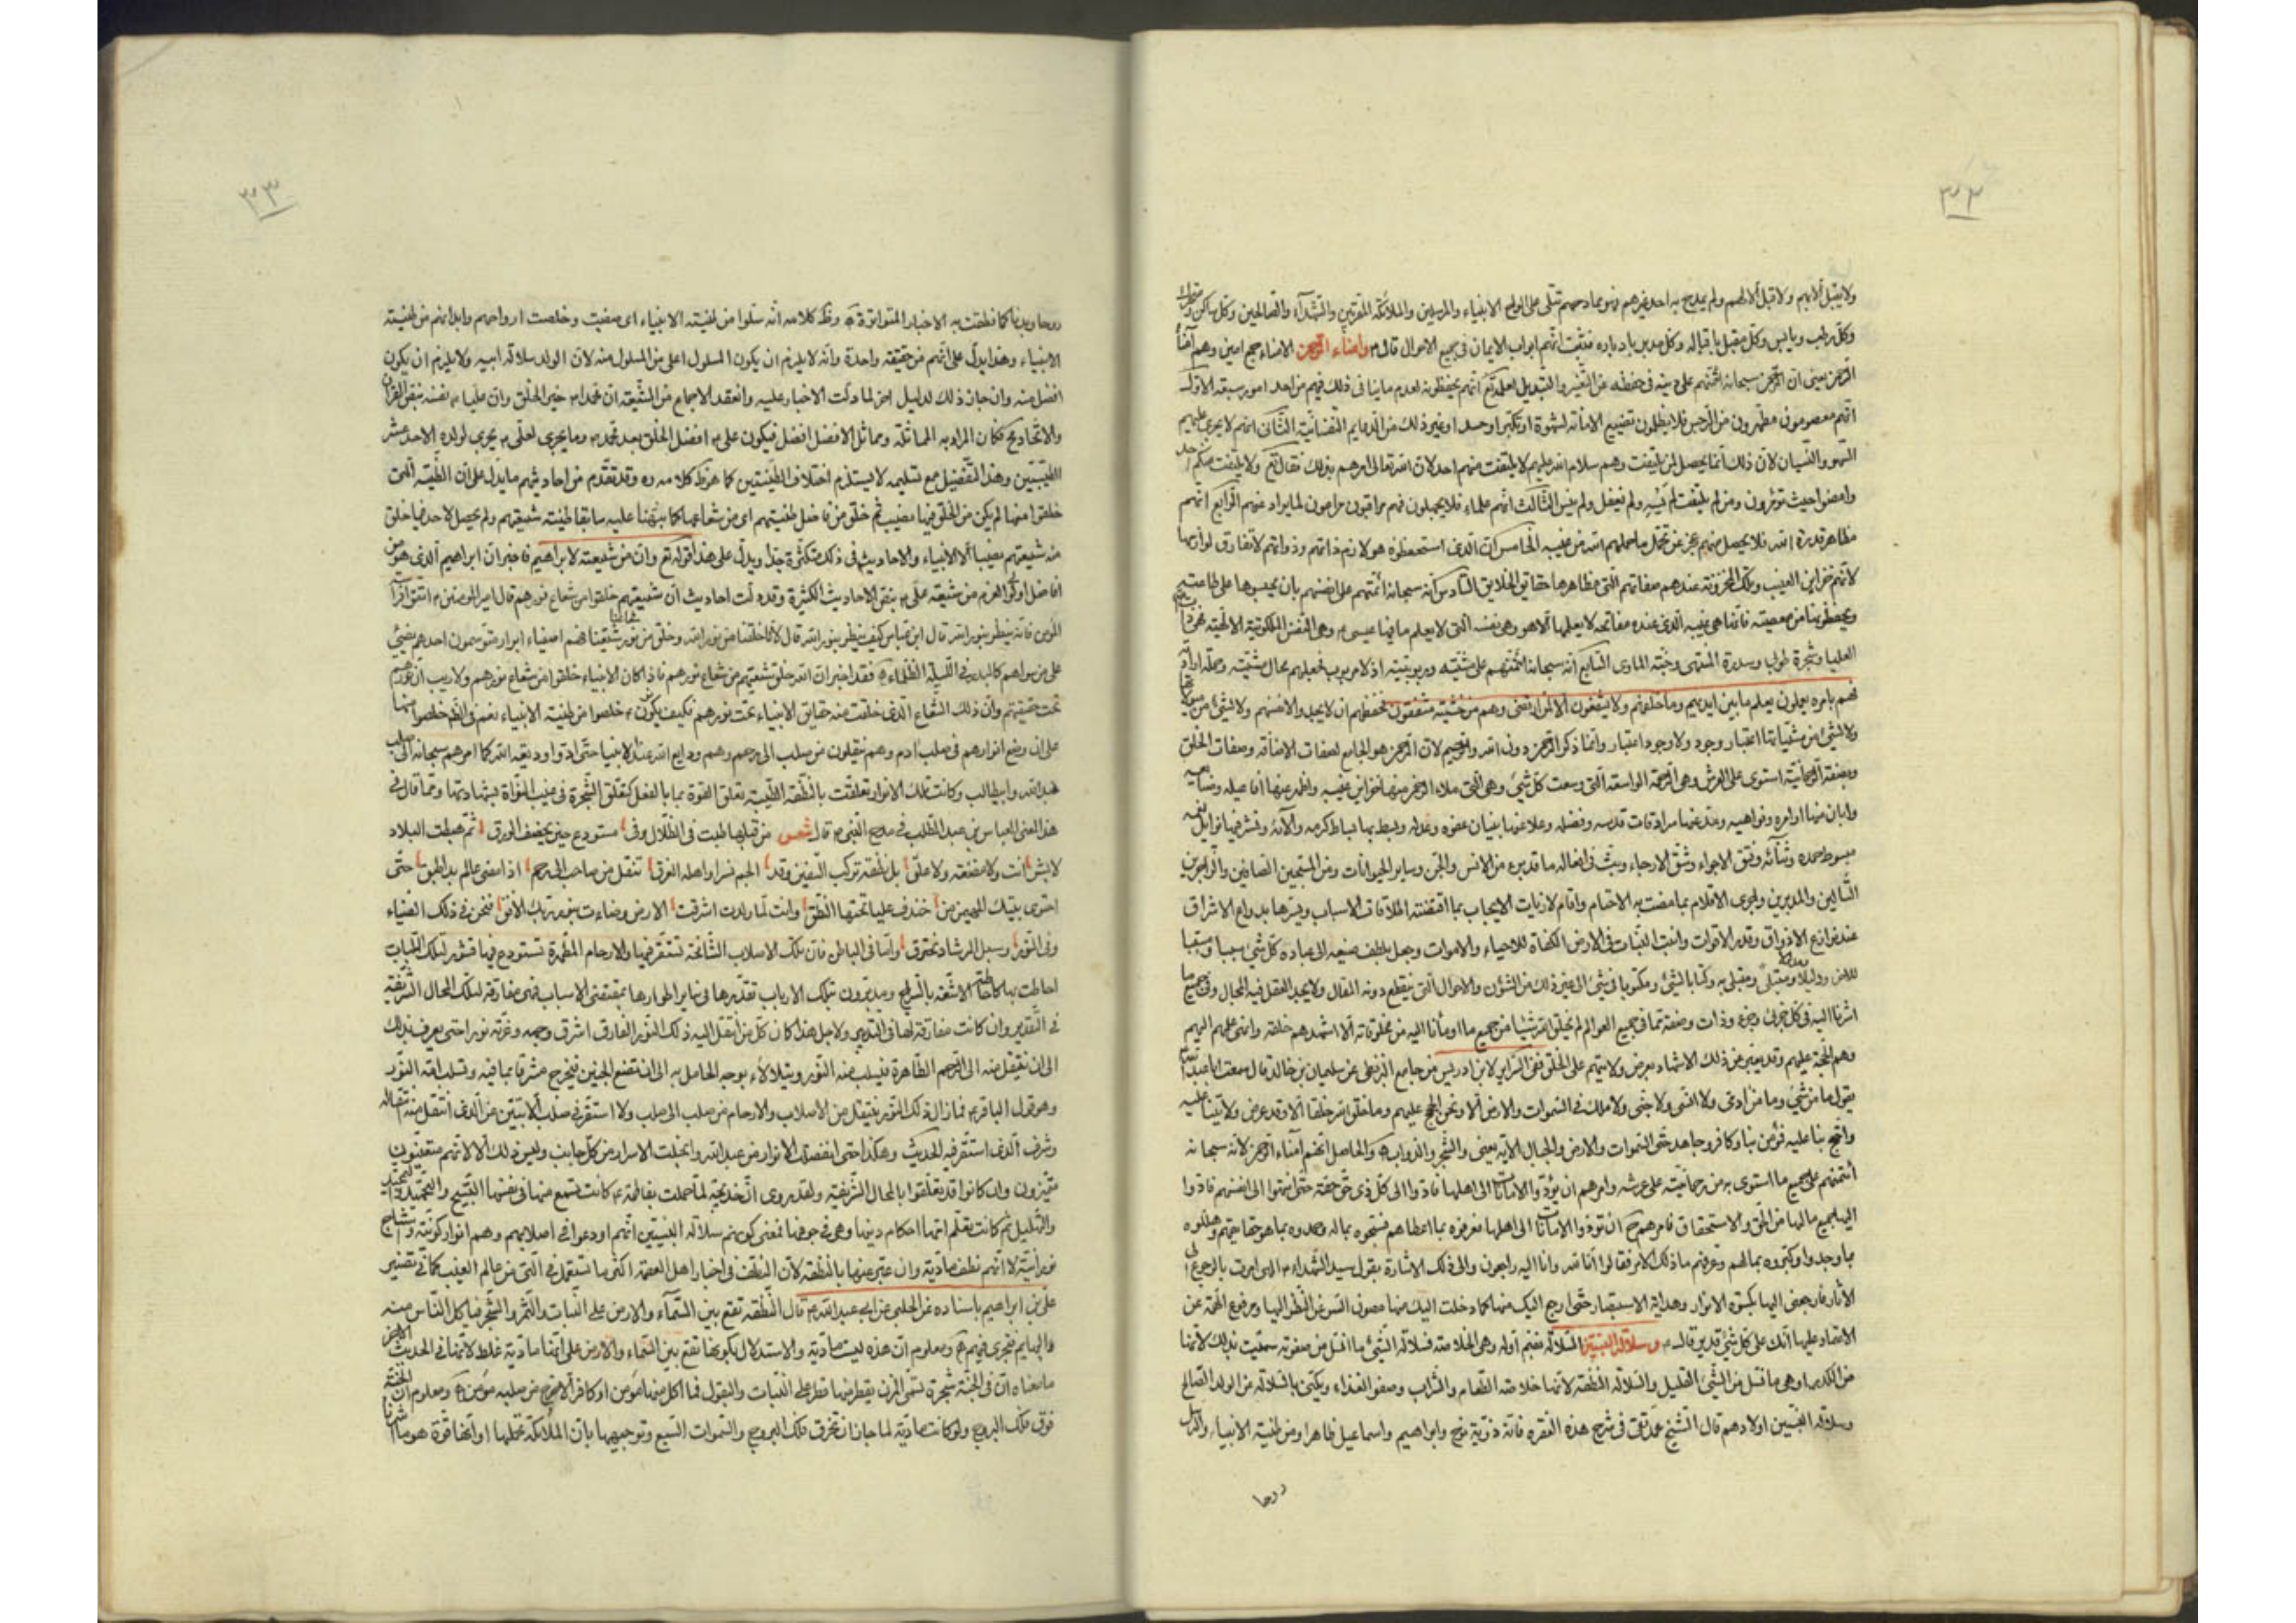 ٣٣
ولا يقبل الا بهم ولا قبل الا لهم ولم يمدح به احد غيرهم وبمادحهم تتلى على الواح الانبياء والمرسلين والملائكة المقربين والشهداء والصالحين وكل ساكن ومتحرك
وكل رطب ويابس وكل مقبل باقباله وكل مدبر بادباره فثبت انهم ابواب الايمان في جميع الاحوال قال وامناء الرحمن الامناء جمع امين وهم امناء
الرحمن يعني ان الرحمن سبحانه ائتمنهم على دينه في حفظه عن التغيير والتبديل لعلمه انهم يحفظونه لعدم ما ينافي ذلك فيهم من احد امور سبعة الاول
انهم معصومون مطهرون من الرجس فلا يظلمون تضييع الامانة لشهوة او تكبر او حسد او غير ذلك من الذمايم النفسانية الثاني انهم لا يجري عليهم
السهو والنسيان لان ذلك انما يحصل لمن يلتفت وهم سلام الله عليهم لا يلتفت منهم احد لان الله تعالى امرهم بذلك فقال ولا يلتفت منكم احد
وامضوا حيث تؤمرون ومن لم يلتفت لم ينس ولم يغفل ولم الثالث انهم علماء فلا يجهلون فهم مراقبون مراعون لما يراد منهم الرابع انهم
مظاهر قدرة الله فلا يحصل منهم عجز عن تحمل ما حملهم الله من غيبه الخامس ان الذي استحفظوه هو لازم ذاتهم وذواتهم لا تفارق لوازمها
لانهم خزاين الغيب وتلك المخزونة عندهم صفاتهم التي مظاهرها حقايق الخلايق السادس انه سبحانه ائتمنهم على انفسهم بان يحبسوها على طاعته
ويحفظوها من معصيته فانها هي غيبه الذي عنده مفاتحه لا يعلمها الا هو وهي نفسه التي لا يعلم ما فيها عيسى وهي النفس الملكوتية الالهية
العليا وشجرة طوبى وسدرة المنتهى وجنة الماوى السابع انه سبحانه ائتمنهم على مشيته وربوبيته اذ لا مربوب فجعلهم محال مشيته
فهم بامره يعملون يعلم ما بين ايديهم وما خلفهم ولا يشفعون الا لمن ارتضى وهم من خشيته مشفقون فحفظهم ان لا يجدوا لانفسهم ولا لشيء
ولا لشيء من اعتبار وجود ولا وجود اعتبار وانما ذكر الرحمن دون الله والرحيم لان الرحمن هو الجامع لصفات الاضافة وصفات الخلق
وبصفة الرحمانية استوى على العرش وهي الرحمة الواسعة التي وسعت كل شيء وهي التي ملاء الرحمن منها خزاين غيبه واظهر عنها افاعيله
وابان منها اوامره ونواهيه ومد عنها سرادقات قدسه وفضله وعلا عنها بنيان عفوه وعدله وبسط بها بساط كرمه والائه ونشر فيها
مبسوط حمده وثنائه وفتق الاجواء وشق الارجاء وبث في افعاله ما قدر من الانس والجن وساير الحيوانات ومن المسبحين الصافين والزاجرين
التالين والمدبرين واجرى الاقلام بما مضت به الاحتام واقام لازمات الايجاب بما اقتضته الملاقات الاسباب ويسرها بدوام الاشراق
الارزاق وقدر الاقوات وانبت النبات في الارض الكفاة للاحياء والاموات وجعل بلطف صنيعه الى عباده كل شيء سببا ومسببا
ودليلا ومدلولا وكتابا لشيء ومكتوبا في شيء الى غير ذلك من الشؤن والاحوال التي ينقطع دونه المقال ولا يجد العقل فيه المجال وفي جميع ما
اشرنا اليه في كل جزئي وجزء وذات وصفة مما في جميع العوالم لم يخلق الله شيئا من جميع ما اومأنا اليه من مخلوقاته الا اشهدهم خلقه وانهى علمه اليهم
وهم الحجة عليهم وقد يعبر عن ذلك الاشهاد بعرض ولايتهم على الخلق ففي السراير لابن ادريس من جامع البزنطي عن سليمان بن خالد قال سمعت ابا عبد الله
يقول ما من شيء وما من ادمي ولا انسي ولا جني ولا ملك في السموات والارض الا ونحن الحجج عليهم وما خلق الله خلقا الا وقد عرض ولايتنا عليه
واحتج بنا عليه فمؤمن بنا وكافر وجاحد حتى السموات والارض والجبال الاية يعني والشجر والدواب والحاصل انهم امناء الرحمن لانه سبحانه
ائتمنهم على جميع ما استوى به من رحمانيته على عرشه وامرهم ان يؤدوا الامانات الى اهلها فادوا الى كل ذي حق حقه حتى انتهوا الى انفسهم فادوا
اليها جميع مالها من الحق والاستحقاق فامرهم ان تؤدوا الامانات الى اهلها فعرفوه بما اعطاهم فسبحوه بماله وحمدوه بما هو حقايقهم وهللوه
بما وجدوا وكبروه بمالهم وعرفهم ماذلك الامر فقالوا انا لله وانا اليه راجعون والى ذلك الاشارة بقول سيد الشهداء الهي امرت بالرجوع الى
الاثار فارجعني اليها بكسوة الانوار وهداية الاستبصار حتى ارجع اليك منها كما دخلت اليك منها مصون السر عن النظر اليها ومرفوع الهمة عن
الاعتماد عليها انك على كل شيء قدير قال وسلالة النبيين السلالة بضم اوله وهي الخلاصة فسلالة الشيء ما انسل من صفوته سميت بذلك لانها
من الكدر او هي ما انسل من الشيء القليل والسلالة النطفة لانها خلاصة الطعام والشراب وصفو الغذاء ويكنى بالسلالة عن الولد الصالح
وسلالة النبيين اولادهم قال الشيخ محمد تقي في شرح هذه الفقرة فانه ذرية نوح وابراهيم واسماعيل ظاهرا ومن طينة الانبياء والرسل
روحا
٣٣
روحا وبدنا كما نطقت به الاخبار المتواترة وظ كلامه انه سلوا من طينة الانبياء اي صفيت وخلصت ارواحهم وابدانهم من طينة
الانبياء وهذا يدل على انهم من حقيقة واحدة وانه لا يلزم ان يكون المسلول اعلى من المسلول منه لان الولد سلالة ابيه ولا يلزم ان يكون
افضل منه وان جاز ذلك لدليل اخر لما دلت الاخبار عليه وانعقد الاجماع من الشيعة ان محمدا خير الخلق وان عليا نفسه بنص القران
والاتحاد فكان المراد به المماثلة ومماثل الافضل افضل فيكون علي افضل الخلق بعد محمد وما يجري لعلي يجري لولده الاحد عشر
الطيبين وهذا التفضيل مع تسليمه لا يستلزم اختلاف الطينتين كما هو ظ كلامه ره وقد تقدم من احاديثهم ما يدل على ان الطينة التي
خلقوا منها لم يكن من الخلق فيها نصيب ثم خلق من فاضل طينتهم اي من شعاعها كما نبهنا عليه سابقا طينة شيعتهم ولم يحصل لاحد فيما خلق
منه شيعتهم نصيبا الا الانبياء والاحاديث في ذلك متكثرة جدا ويدل على هذا قوله تع وان من شيعته لابراهيم فاخبر ان ابراهيم الذي هو من
افاضل اولو العزم من شيعة علي بنص الاحاديث الكثيرة وقد دلت احاديث ان شيعتهم خلقوا من شعاع نورهم قال امير المؤمنين اتقوا فراسة
المؤمن فانه ينظر بنور الله قال ابن عباس كيف ينظر بنور الله قال لانا خلقنا من نور الله وخلق من نور شيعتنا فهم اصفياء ابرار متوسمون احدهم يضيء
على من سواهم كالبدر في الليلة الظلماء فقد اخبر ان الله خلق شيعتهم من شعاع نورهم فاذا كان الانبياء خلقوا من شعاع نورهم ولا ريب ان نورهم
تحت حقيقتهم وان ذلك الشعاع الذي خلقت منه حقايق الانبياء تحت نورهم فكيف يكون خلصوا من طينة الانبياء نعم في الظ خلصوا منها
على ان وضع انوارهم في صلب ادم وهم ينقلون من صلب الى رحم وهم ودايع الله عند الانبياء حتى ادوا وديعة الله كما امرهم سبحانه الى صلب
عبد الله وابي طالب وكانت تلك الانوار تعلقت بالنطفة الطيبة تعلق القوة بما بالفعل كتعلق الشجرة في غيب النواة بشهادتها ومما قال في
هذا المعنى العباس بن عبد المطلب في مدح النبي قال شعر من قبلها طبت في الظلال وفي مستودع حين يخصف الورق ثم هبطت البلاد
لا بشر انت ولا مضغة ولا علق بل نطفة تركب السفين وقد الجم نسرا واهله الغرق تنقل من صالب الى رحم اذا مضى عالم بدا طبق حتى
احتوى بيتك المهيمن من خندف علياء تحتها النطق وانت لما ولدت اشرقت الارض وضاءت بنورك الافق فنحن في ذلك الضياء
وفي النور وسبل الرشاد نخترق واما في الباطن فان تلك الاصلاب الشامخة تستقر فيها والارحام المطهرة تستودع فيها قشور لتلك اللباب
احاطت بها كاحاطة الاشعة بالسراج ومدبرون تلك الارباب تقديرها في ساير اطوارها بمقتضى الاسباب فهي مفارقة لتلك المحال الشريفة
في التقدير وان كانت مفارقة لها في التدبير ولاجل هذا كان كل من انتقل اليه ذلك النور الفارق اشرق وجهه وغرته نورا حتى يعرف بذلك
الى ان ينتقل منه الى الرحم الطاهرة فيسلب منه النور ويتلالاء بوجه الحامل به الى ان تضع الجنين فيخرج مشرقا بما فيه وتسلب امه النور
وهو قول الباقر فما زال ذلك النور ينتقل من الاصلاب والارحام من صلب الى صلب ولا استقر في صلب الا تبين عن الذي انتقل منه انتقاله
وشرف الذي استقر فيه الحديث وهكذا حتى انفصلت الانوار من عبد الله وانجلت الاسرار من كل جانب وليس ذلك الا لانهم متعينون
متميزون وان كانوا قد تعلقوا بالمحال الشريفة ولقد روى ان خديجة لما حملت بفاطمة كانت تسمع منها في نفسها التسبيح والتحميد
والتهليل ثم كانت تعلم امها احكام دينها وهي في جوفها فمعنى كونهم سلالة النبيين انهم اودعوا في اصلابهم وهم انوار كونية
نورانية لا انهم نطف مادية وان عبر عنها بالنطفة لان النطف في اخبار اهل العصمة اكثر ما تستعمل في التي من عالم الغيب كما في تفسير
علي بن ابراهيم باسناده عن الحلبي عن ابي عبد الله قال النطفة تقع بين السماء والارض على النبات والثمر والشجر فياكل الناس منه
والبهايم فيجري فيهم ومعلوم ان هذه ليست مادية والاستدلال بكونها تقع بين السماء والارض على انها مادية غلط لانها في الحديث الاخر
ما معناه ان في الجنة شجرة تسمى المزن يقطر منها قطر على النبات والبقول فما اكل منها مؤمن او كافر الا خرج من صلبه مؤمن ومعلوم ان الجنة
فوق فلك البروج ولو كانت مادية لما جاز ان تخرق فلك البروج والسموات السبع وتوجيهها بان الملائكة تحملها او انها قوة